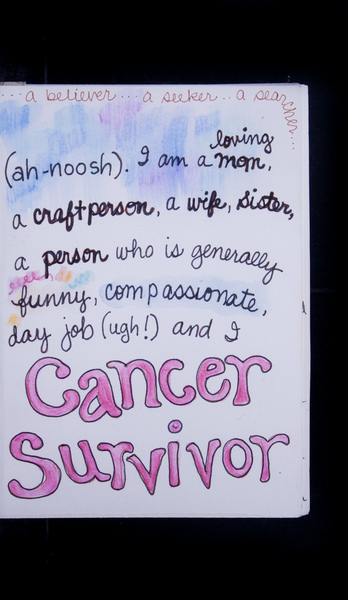 ...a believer...a seeker..a searcher...
loving
(ah-noosh). I am a mom,
a craftperson, a wife, sister,
a person who is generally
funny, compassionate,
day job (ugh!) and I
Cancer
Survivor